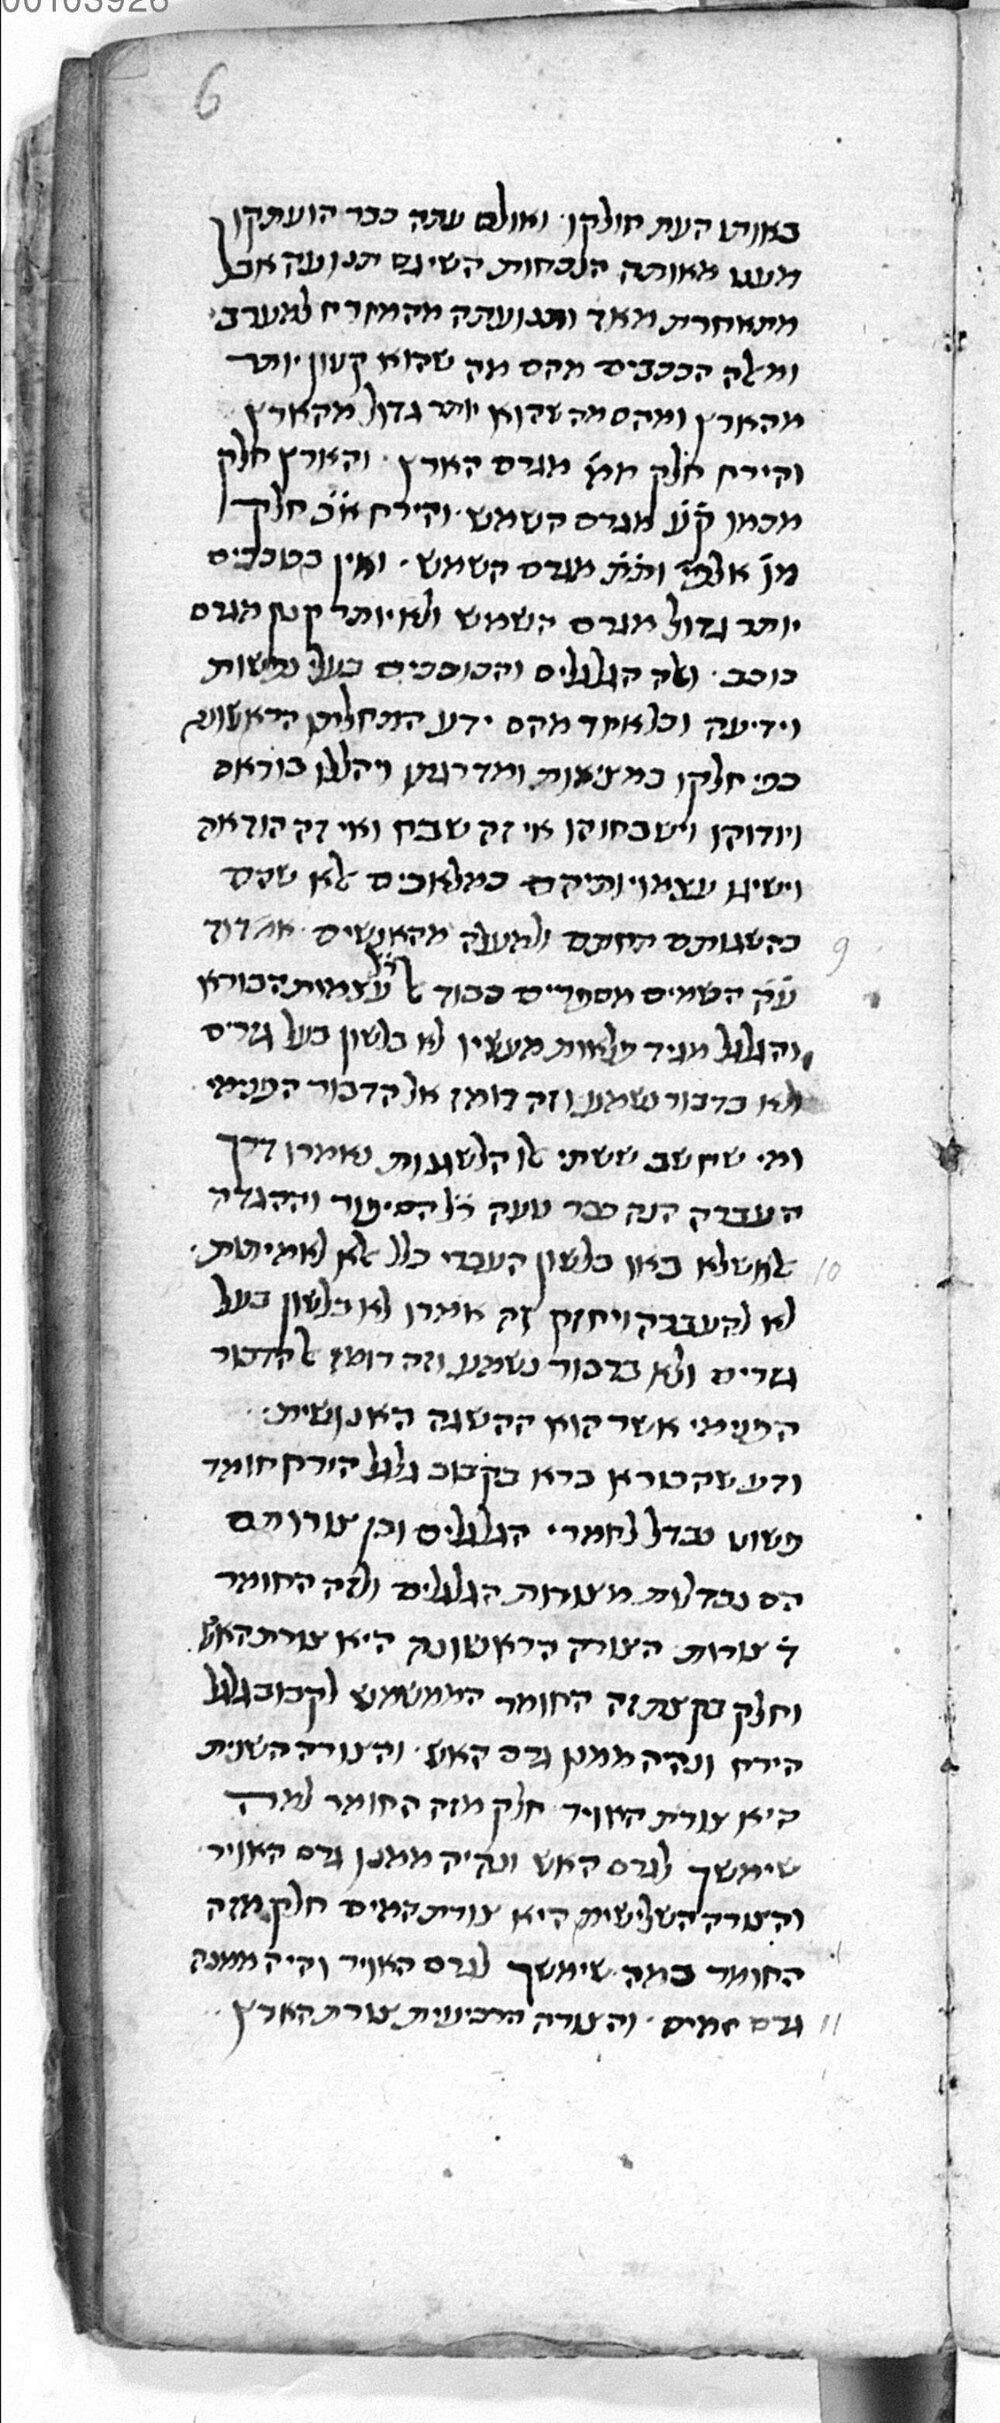 00103926
6
באותו העת חולקו · ואולם עתה כבר הועתקו
מעט מאותה הנכחות השיגם תנועה אבל
מתאחרת מאד ותנועתה מהמזרח למערב ·
ומאלה הככבים מהם מה שהוא קטון יותר
מהארץ ומהם מה שהוא יותר גדול מהארץ
והירח חלק ממ׳ מגרם הארץ · והארץ חלק
מכמו ק״ע מגרם השמש · והירח א״כ חלק
מן אלפי׳ ות״ת מגרם השמש · ואין בככבים
יותר גדול מגרם השמש ולא יותר קטן מגרם
כוכב · ואלה הגלגלים והכוככים בעלי נפשות
וידיעה וכל אחד מהם ידע התחלתו הראשונה
כפי חלקו במציאות ומדרגתו ויהללו בוראם
ויודוהו וישבחוהו אי זה שבח ואי זה הודאה
וישיגו עצמויותיהם כמלאכים אלא שהם
בהשגותם תחתם ולמעלה מהאנשים · אמ׳ דוד
9
ע״ה השמים מספרים כבוד אל ר״ל עצמות הבורא
והגלגל מגיד פלאות מעשיו לא בלשון בעל גזרים
ולא בדבור נשמע וזה רומז אל הדבור הפנימי
ומי שחשב ששתי אלו הלשונות נאמרו דרך
העברה הנה כבר טעה ר״ל הסיפור וההגדה
10
אשלא באו בלשון העברי כלל אלא לאמיתות ·
לא להעברה ויחזק זה אמרו לא בלשון בעל
גזרים ולא בדבור נשמע וזה רומז להדבור
הפנימי אשר הוא ההשגה האנושית ·
ודע שהבורא ברא בקבוב גלגל הירח חומר
פשוט נבדל לחמרי הגלגלים וכן צורותם
הם נבדלות מצורות הגלגלים ולזה החומר
ד׳ צורות הצורה הראשונה היא צורת האש
וחלק בקצת זה החומר הממשמש לקבוב גלגל
הירח ונהיה ממנו גרם האש · והצורה השנית
היא צורת האויר חלק מזה החומר למה
שימשך לגרם האש ונהיה ממנו גרם האויר ·
והצורה השלישית היא צורת המים חלק מזה
החומר במה שימשך לגרם האויר והיה ממנה
11
גרם המים · והצורה הרביעית צורת הארץ